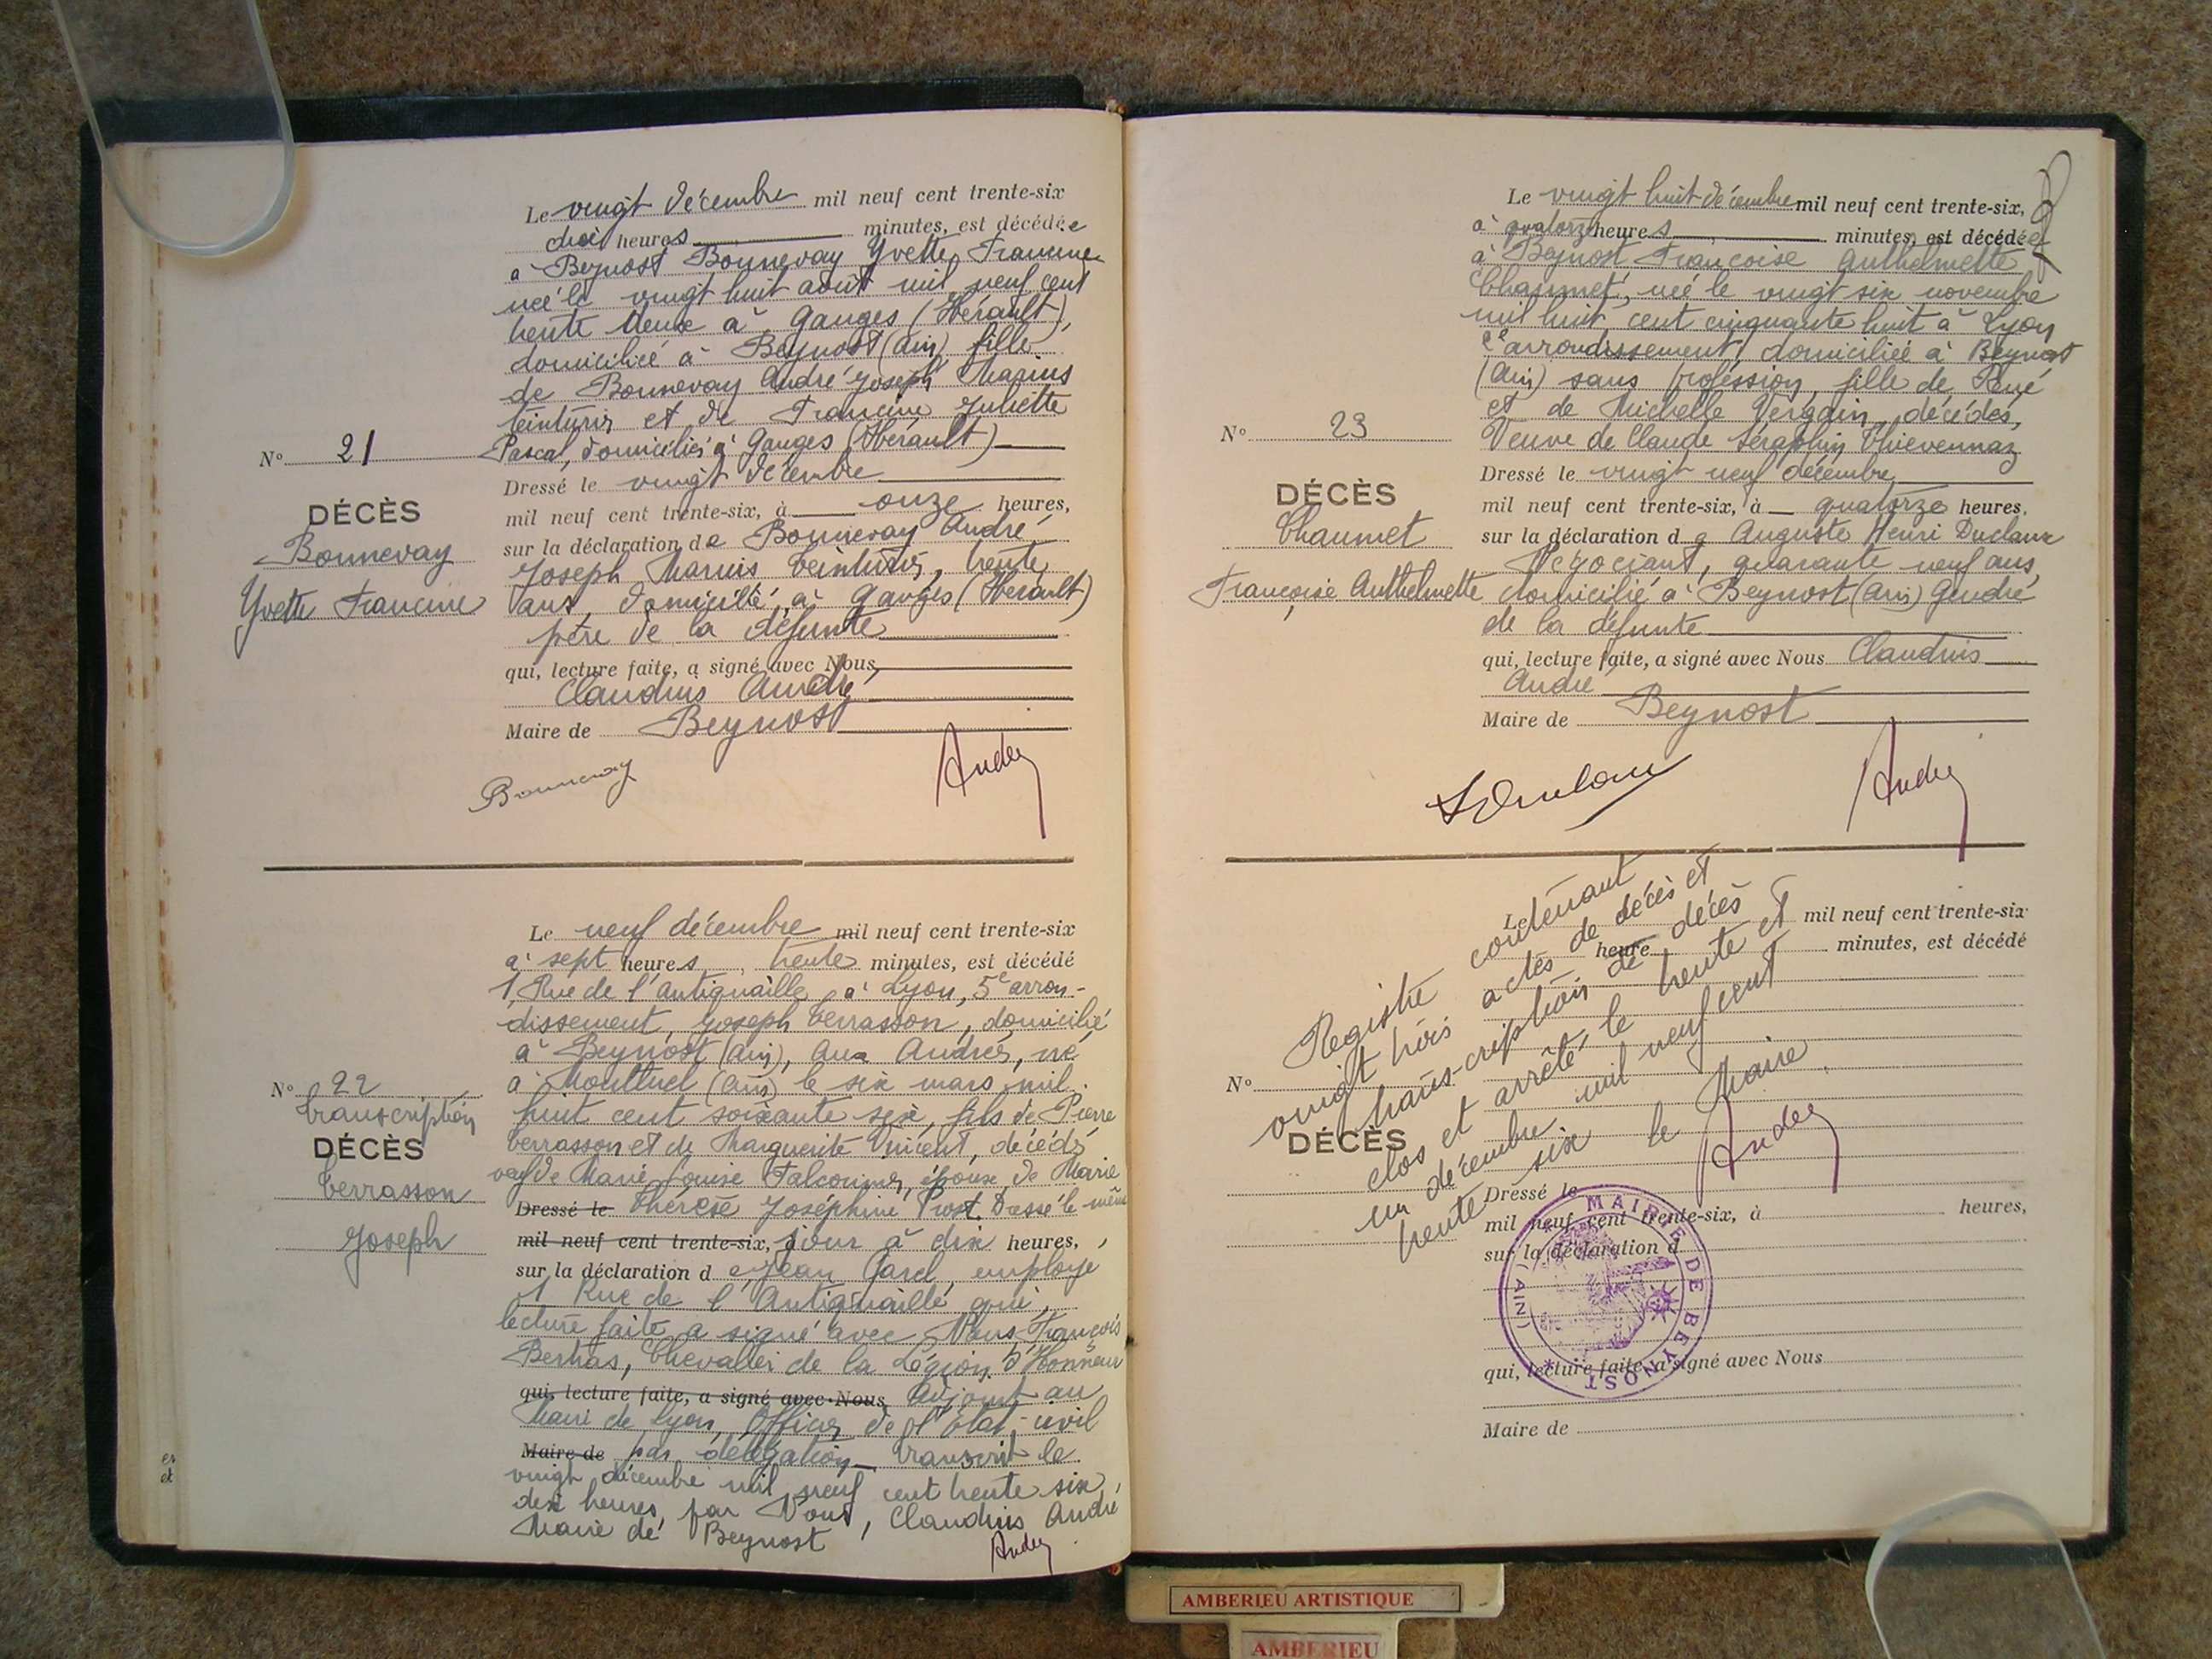 Le vingt décembre mil neuf cent trente-six
heures minutes, est décédée
à Beynost Bonnevay Yvette Francine
née le vingt huit août mil neuf cent
trente deux à Ganges (Hérault),
domiciliée à Beynost (Ain) fille
de Bonnevay André Joseph Marius
teinturier et de Francine Juliette
Pascal, domiciliés à Ganges (Hérault)
N° 21
Dressé le vingt décembre
mil neuf cent trente-six, à onze heures,
DÉCÈS
sur la déclaration de Bonnevay André
Bonnevay
Joseph Marius teinturier, trente
Yvette Francine
ans, domicilié à Ganges (Hérault)
père de la défunte
qui, lecture faite, a signé avec Nous,
Claudius André
Maire de Beynost
Bonnevay
André
Le neuf décembre mil neuf cent trente-six
à sept heures trente minutes, est décédé
1, Rue de l'Antiquaille à Lyon, 5e arron-
dissement, Joseph Terrasson, domicilié
à Beynost (Ain), aux Andrés, né
à Montluel (Ain) le six mars mil
N° 22
huit cent soixante six, fils de Pierre
transcription
DÉCÈS
Terrasson et de Marguerite Vincent, décédés
veuf de Marie Louise époux de Marie
Terrasson
Dressé le Thérèse Joséphine Prost. Dressé le même
Joseph
mil neuf cent trente-six, jour à dix heures,
sur la déclaration de Jean Garel, employé
1 Rue de l'Antiquaille qui,
lecture faite a signé avec Nous François
Chevalier de la Légion d'Honneur
qui, lecture faite, a signé avec Nous, Adjoint au
Maire de Lyon, Officier de l'état-civil
Maire de par délégation transcrit le
vingt décembre mil neuf cent trente six
dix heures, par Nous, Claudius André
Maire de Beynost
André
Le vingt huit décembre mil neuf cent trente-six,
à quatorze heures minutes, est décédée
à Beynost Françoise Anthelmette
Chaumet, née le vingt six novembre
mil huit cent cinquante huit à Lyon
2e arrondissement, domiciliée à Beynost
(Ain) sans profession, fille de René
et de Michelle décédés,
N° 23
Veuve de Claude Séraphin Thievennaz
Dressé le vingt neuf décembre
DÉCÈS
mil neuf cent trente-six, à quatorze heures,
Chaumet
sur la déclaration d e Auguste Henri Duclaux
Négociant, quarante neuf ans,
Françoise Anthelmette
domicilié à Beynost (Ain) Gendre
de la défunte
qui, lecture faite, a signé avec Nous Claudius
André
Maire de Beynost
André
Le mil neuf cent trente-six
heure minutes, est décédé
N°
DÉCÈS
Registre contenant
vingt trois actes de décès et
transcription de décès
clos et arrêté le trente et
un décembre mil neuf cent
trente six le Maire
André
Dressé le
mil neuf cent trente-six, à heures,
sur la déclaration d
MAIRIE DE BEYNOST
(AIN)
qui, lecture faite, a signé avec Nous
Maire de
er
et
AMBERIEU ARTISTIQUE
AMBERIEU